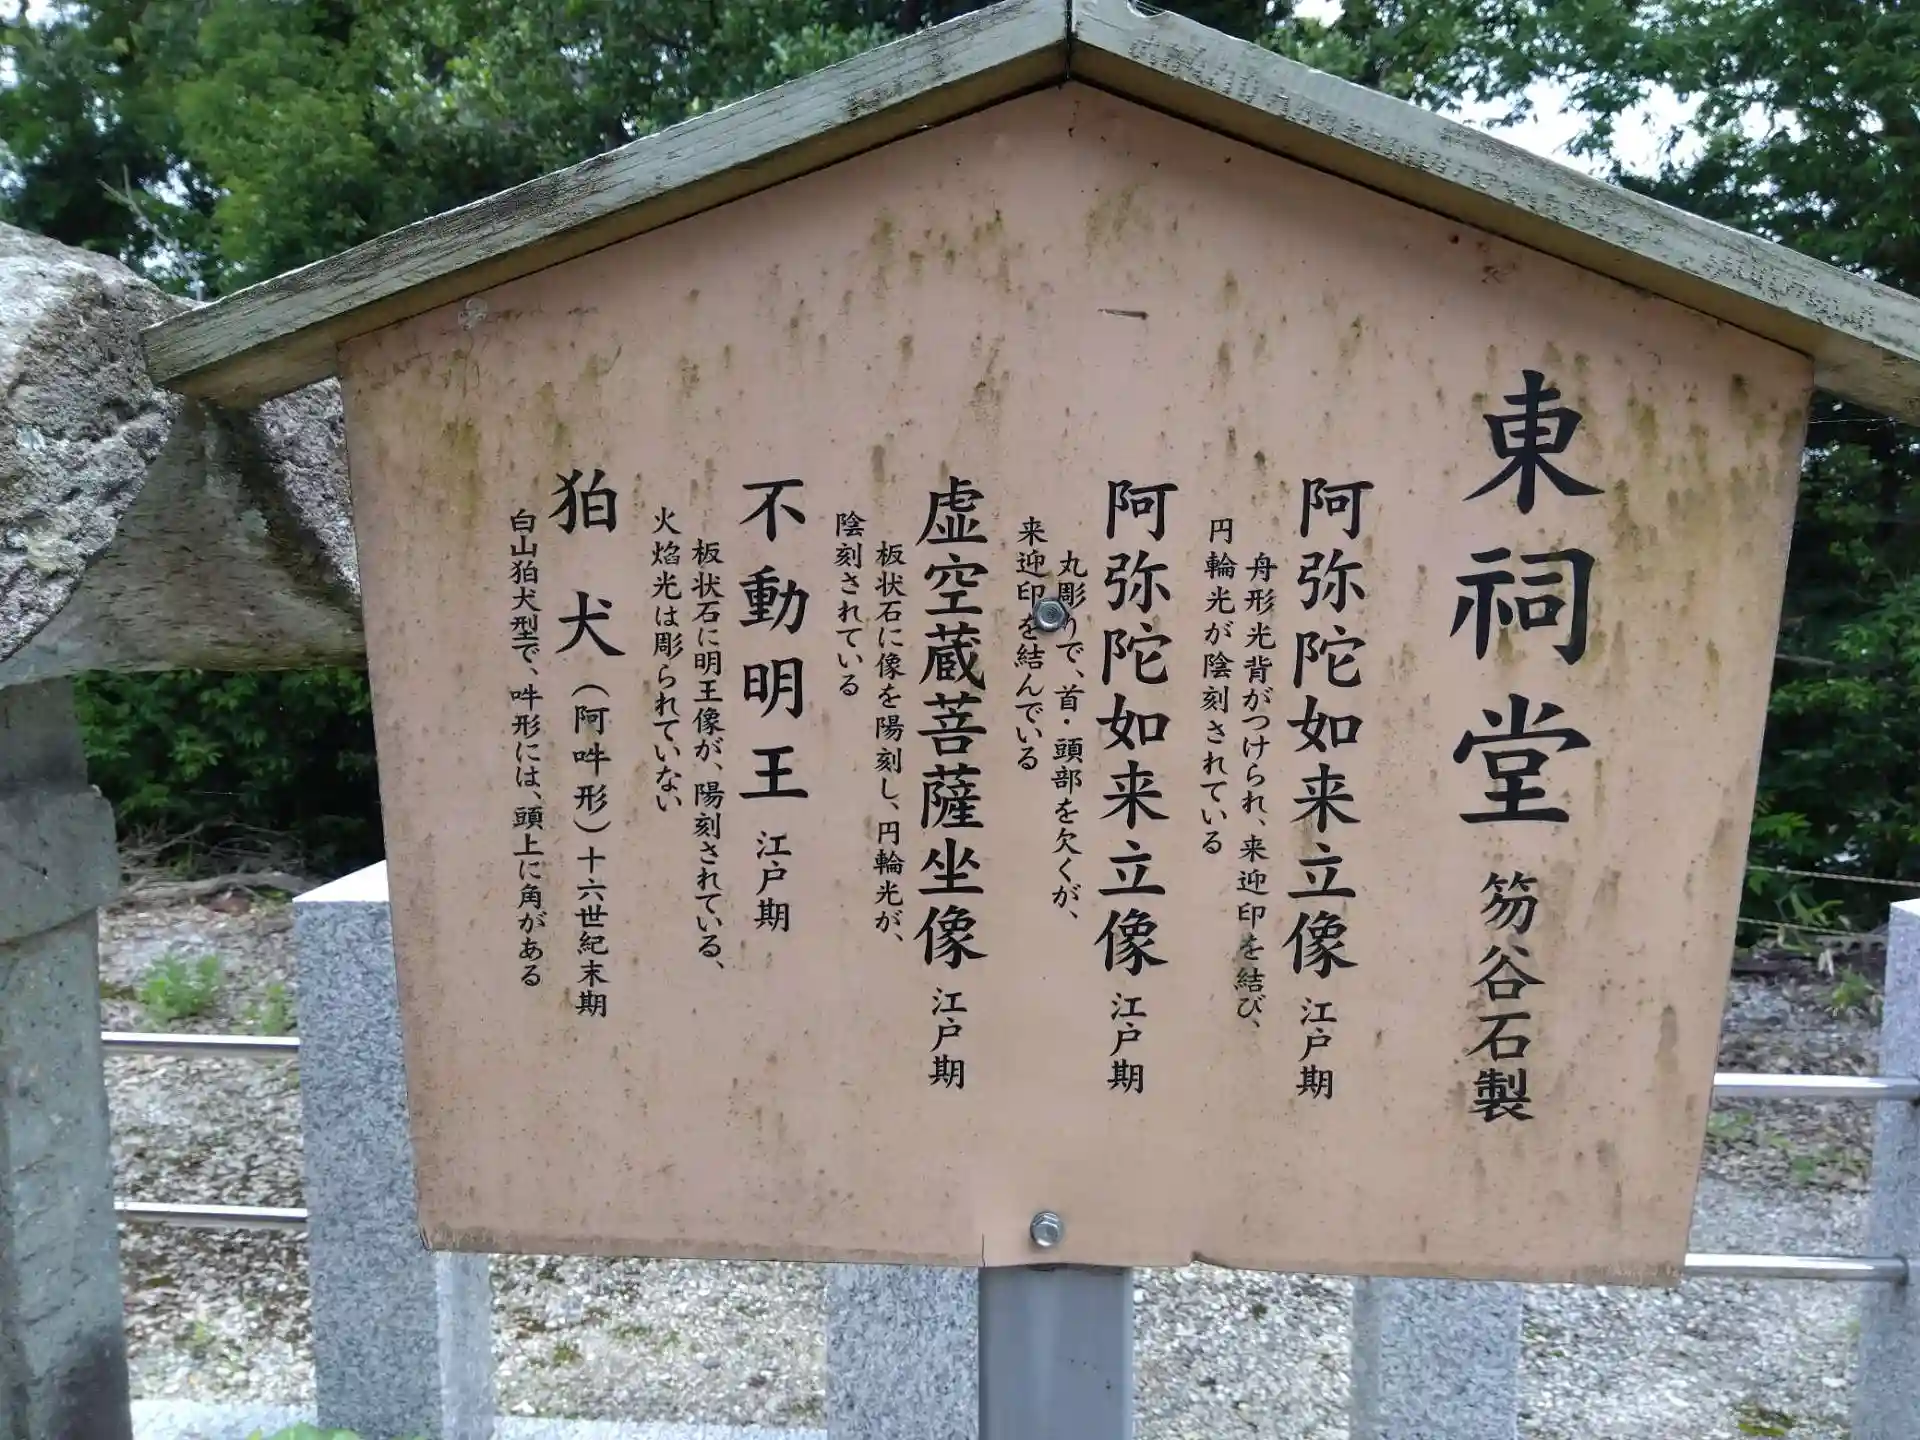 東祠堂 笏谷石製
阿弥陀如来立像 江戸期
舟形光背がつけられ、来迎印を結び、
円輪光が陰刻されている
阿弥陀如来立像 江戸期
丸彫りで、首・頭部を欠くが、
来迎印を結んでいる
虚空蔵菩薩坐像 江戸期
板状石に像を陽刻し、円輪光が、
陰刻されている
不動明王 江戸期
板状石に明王像が、陽刻されている、
火焰光は彫られていない
狛犬(阿吽形)十六世紀末期
白山狛犬型で、吽形には、頭上に角がある